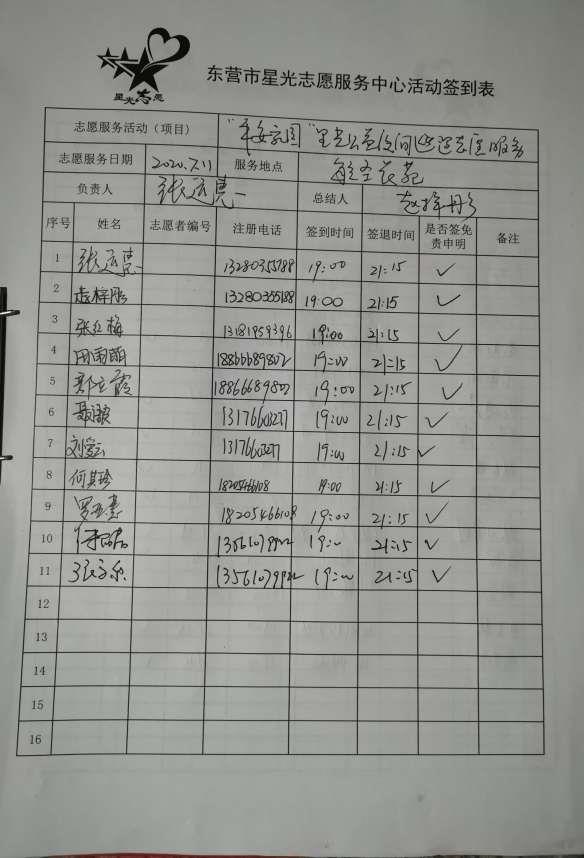 星光志愿
东营市星光志愿服务中心活动签到表
志愿服务活动（项目） "平安家园"星光公益夜间巡逻志愿服务
志愿服务日期 2020.7.11 服务地点
负责人 总结人
序号 姓名 志愿者编号 注册电话 签到时间 签退时间 是否签免责申明 备注
1 13280355788 19:00 21:15 ✓
2 13280355188 19:00 21:15 ✓
3 张红梅 13181959396 19:00 21:15 ✓
4 田雨萌 18866689802 19:00 21:15 ✓
5 18866689802 19:00 21:15 ✓
6 13176603277 19:00 21:15 ✓
7 刘爱云 13176603277 19:00 21:15 ✓
8 何其珍 18205466108 19:00 21:15 ✓
9 18205466108 19:00 21:15 ✓
10 13561079922 19:00 21:15 ✓
11 13561079922 19:00 21:15 ✓
12
13
14
15
16